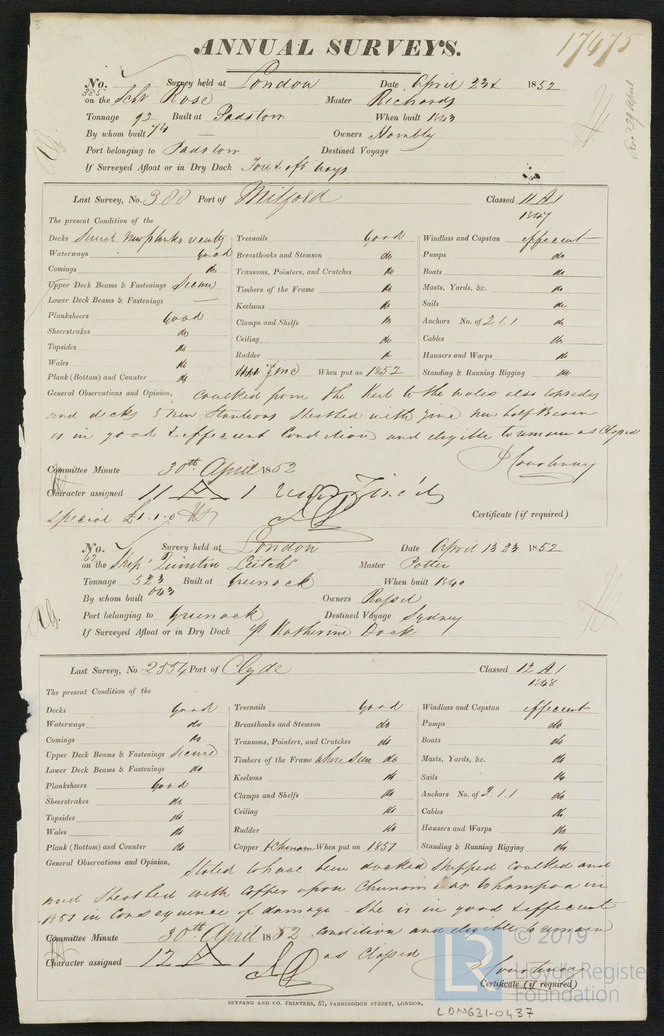 ANNUAL SURVEYS.
17475
No. 385 Survey held at London Date April 23d 1852
on the Schr Rose Master Richards
Tonnage 92 Built at Padstow When built 1843
By whom built 74 — Owners Hambly
Port belonging to Padstow Destined Voyage —
If Surveyed Afloat or in Dry Dock
Rec 29 April
Last Survey, No. 388 Port of Milford Classed 11 A1
1847
The present Condition of the
Decks
Waterways good
Comings do
Upper Deck Beams & Fastenings Secure
Lower Deck Beams & Fastenings —
Planksheers Good
Sheerstrakes do
Topsides do
Wales do
Plank (Bottom) and Counter do
Treenails Good
Breasthooks and Stemson do
Transoms, Pointers, and Crutches do
Timbers of the Frame do
Keelsons do
Clamps and Shelfs do
Ceiling do
Rudder do
Zinc When put on 1852
Windlass and Capstan efficient
Pumps do
Boats do
Masts, Yards, &c. do
Sails do
Anchors No. of 2.1.1 do
Cables do
Hawsers and Warps do
Standing & Running Rigging do
General Observations and Opinion, Caulked from the Keel to the Wales also topsides
and decks 5 new Stantions Sheathed with Zinc new
is in good & efficient Condition and eligible to remain as Classed
Committee Minute 30th April 1852
Character assigned 11 A 1
Special £1.1.0
Certificate (if required)
No. 62 Survey held at London Date April 13 23 1852
on the Ship Quintin Leitch Master Potter
Tonnage 523 Built at Greenock When built 1840
By whom built 643 Owners
Port belonging to Greenock Destined Voyage Sydney
If Surveyed Afloat or in Dry Dock St Katherine Dock
Last Survey, No 2554 Port of Clyde Classed 12 A1
1848
The present Condition of the
Decks Good
Waterways do
Comings do
Upper Deck Beams & Fastenings Secure
Lower Deck Beams & Fastenings do
Planksheers Good
Sheerstrakes do
Topsides do
Wales do
Plank (Bottom) and Counter do
Treenails Good
Breasthooks and Stemson do
Transoms, Pointers, and Crutches do
Timbers of the Frame where seen do
Keelsons do
Clamps and Shelfs do
Ceiling do
Rudder do
Copper & Chunam When put on 1851
Windlass and Capstan efficient
Pumps do
Boats do
Masts, Yards, &c. do
Sails do
Anchors No. of 3.1.1 do
Cables do
Hawsers and Warps do
Standing & Running Rigging do
General Observations and Opinion, Stated to have been docked Stripped Caulked and
and Sheathed with Copper upon Chunam at Whampoa in
1851 in Consequence of damage - She is in good & efficient
condition and eligible to remain
as Classed
Committee Minute 30th April 1852
Character assigned 12 A 1
Certificate (if required)
SEYFANG AND CO. PRINTERS, 57, FARRINGDON STREET, LONDON.
LR © 2019
Lloyd's Register
Foundation
LDN631-0437